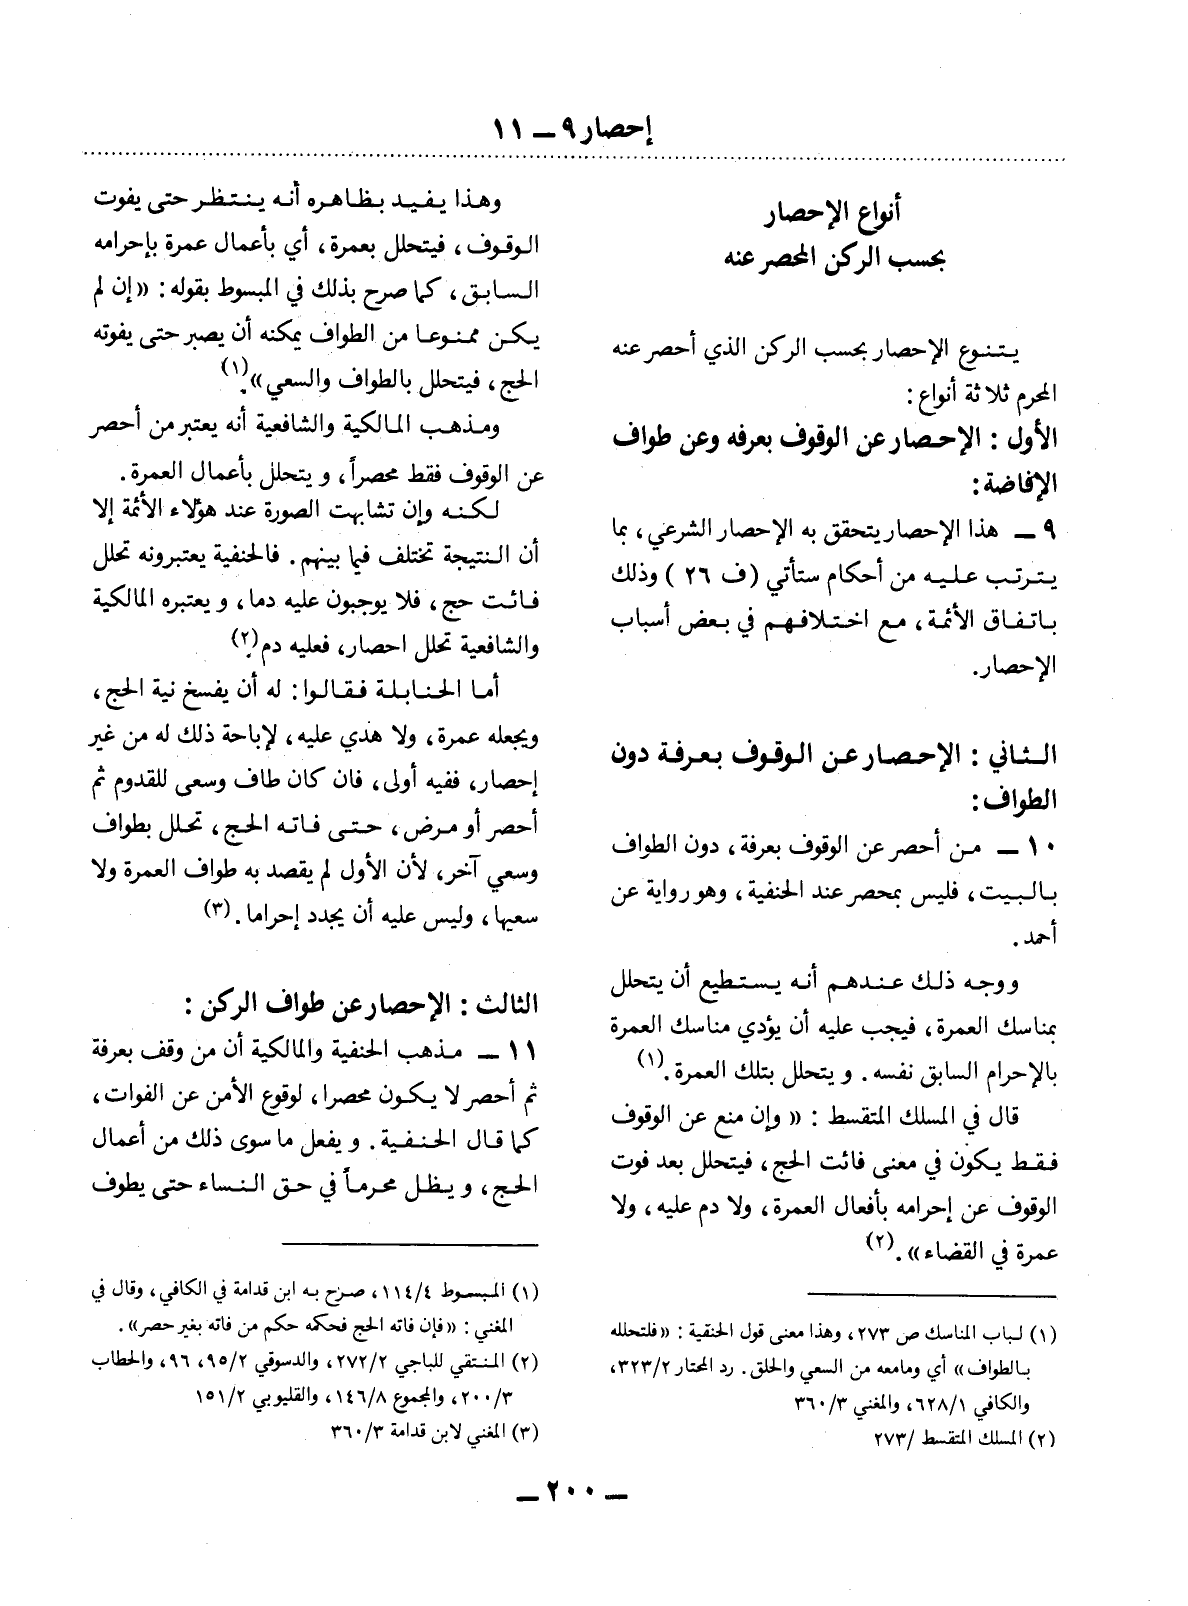 إحصار ٩ ــ ١١
أنواع الإحصار
بحسب الركن المحصر عنه
يتنوع الإحصار بحسب الركن الذي أحصر عنه
المحرم ثلاثة أنواع :
الأول : الإحصار عن الوقوف بعرفه وعن طواف
الإفاضة :
٩ ــ هذا الإحصار يتحقق به الإحصار الشرعي ، بما
يترتب عليه من أحكام ستأتي (ف ٢٦ ) وذلك
باتفاق الأئمة ، مع اختلافهم في بعض أسباب
الإحصار.
الثاني : الإحصار عن الوقوف بعرفة دون
الطواف :
١٠ ــ من أحصر عن الوقوف بعرفة ، دون الطواف
بالبيت ، فليس بمحصر عند الحنفية ، وهو رواية عن
أحمد .
ووجه ذلك عندهم أنه يستطيع أن يتحلل
بمناسك العمرة ، فيجب عليه أن يؤدي مناسك العمرة
بالإحرام السابق نفسه . ويتحلل بتلك العمرة .(١)
قال في المسلك المتقسط : « وإن منع عن الوقوف
فقط يكون في معنى فائت الحج ، فيتحلل بعد فوت
الوقوف عن إحرامه بأفعال العمرة ، ولا دم عليه ، ولا
عمرة في القضاء » .(٢)
(١) لباب المناسك ص ٢٧٣ ، وهذا معنى قول الحنفية : « فلتحلله
بالطواف » أي ومامعه من السعي والحلق . رد المحتار ٣٢٣/٢ ،
والكافي ٦٢٨/١ ، والمغني ٣٦٠/٣
(٢) المسلك المتقسط /٢٧٣
وهذا يفيد بظاهره أنه ينتظر حتى يفوت
الوقوف ، فيتحلل بعمرة ، أي بأعمال عمرة بإحرامه
السابق ، كما صرح بذلك في المبسوط بقوله : « إن لم
يكن ممنوعا من الطواف يمكنه أن يصبر حتى يفوته
الحج ، فيتحلل بالطواف والسعي » .(١)
ومذهب المالكية والشافعية أنه يعتبر من أحصر
عن الوقوف فقط محصراً ، ويتحلل بأعمال العمرة .
لكنه وإن تشابهت الصورة عند هؤلاء الأئمة إلا
أن النتيجة تختلف فيما بينهم . فالحنفية يعتبرونه تحلل
فائت حج ، فلا يوجبون عليه دما ، ويعتبره المالكية
والشافعية تحلل احصار، فعليه دم .(٢)
أما الحنابلة فقالوا : له أن يفسخ نية الحج ،
ويجعله عمرة ، ولا هدي عليه ، لإباحة ذلك له من غير
إحصار، ففيه أولى ، فان كان طاف وسعى للقدوم ثم
أحصر أو مرض ، حتى فاته الحج ، تحلل بطواف
وسعي آخر، لأن الأول لم يقصد به طواف العمرة ولا
سعيها ، وليس عليه أن يجدد إحراما .(٣)
الثالث : الإحصار عن طواف الركن :
١١ ــ مذهب الحنفية والمالكية أن من وقف بعرفة
ثم أحصر لا يكون محصرا ، لوقوع الأمن عن الفوات ،
كما قال الحنفية . ويفعل ما سوى ذلك من أعمال
الحج ، ويظل محرماً في حق النساء حتى يطوف
(١) المبسوط ١١٤/٤ ، صرح به ابن قدامة في الكافي ، وقال في
المغني : « فإن فاته الحج فحكمه حكم من فاته بغير حصر» .
(٢) المنتقي للباجي ٢٧٢/٢ ، والدسوقي ٩٥/٢ ، ٩٦ ، والحطاب
٢٠٠/٣ ، والمجموع ١٤٦/٨ ، والقليوبي ١٥١/٢
(٣) المغني لابن قدامة ٣٦٠/٣
ــ ٢٠٠ ــ